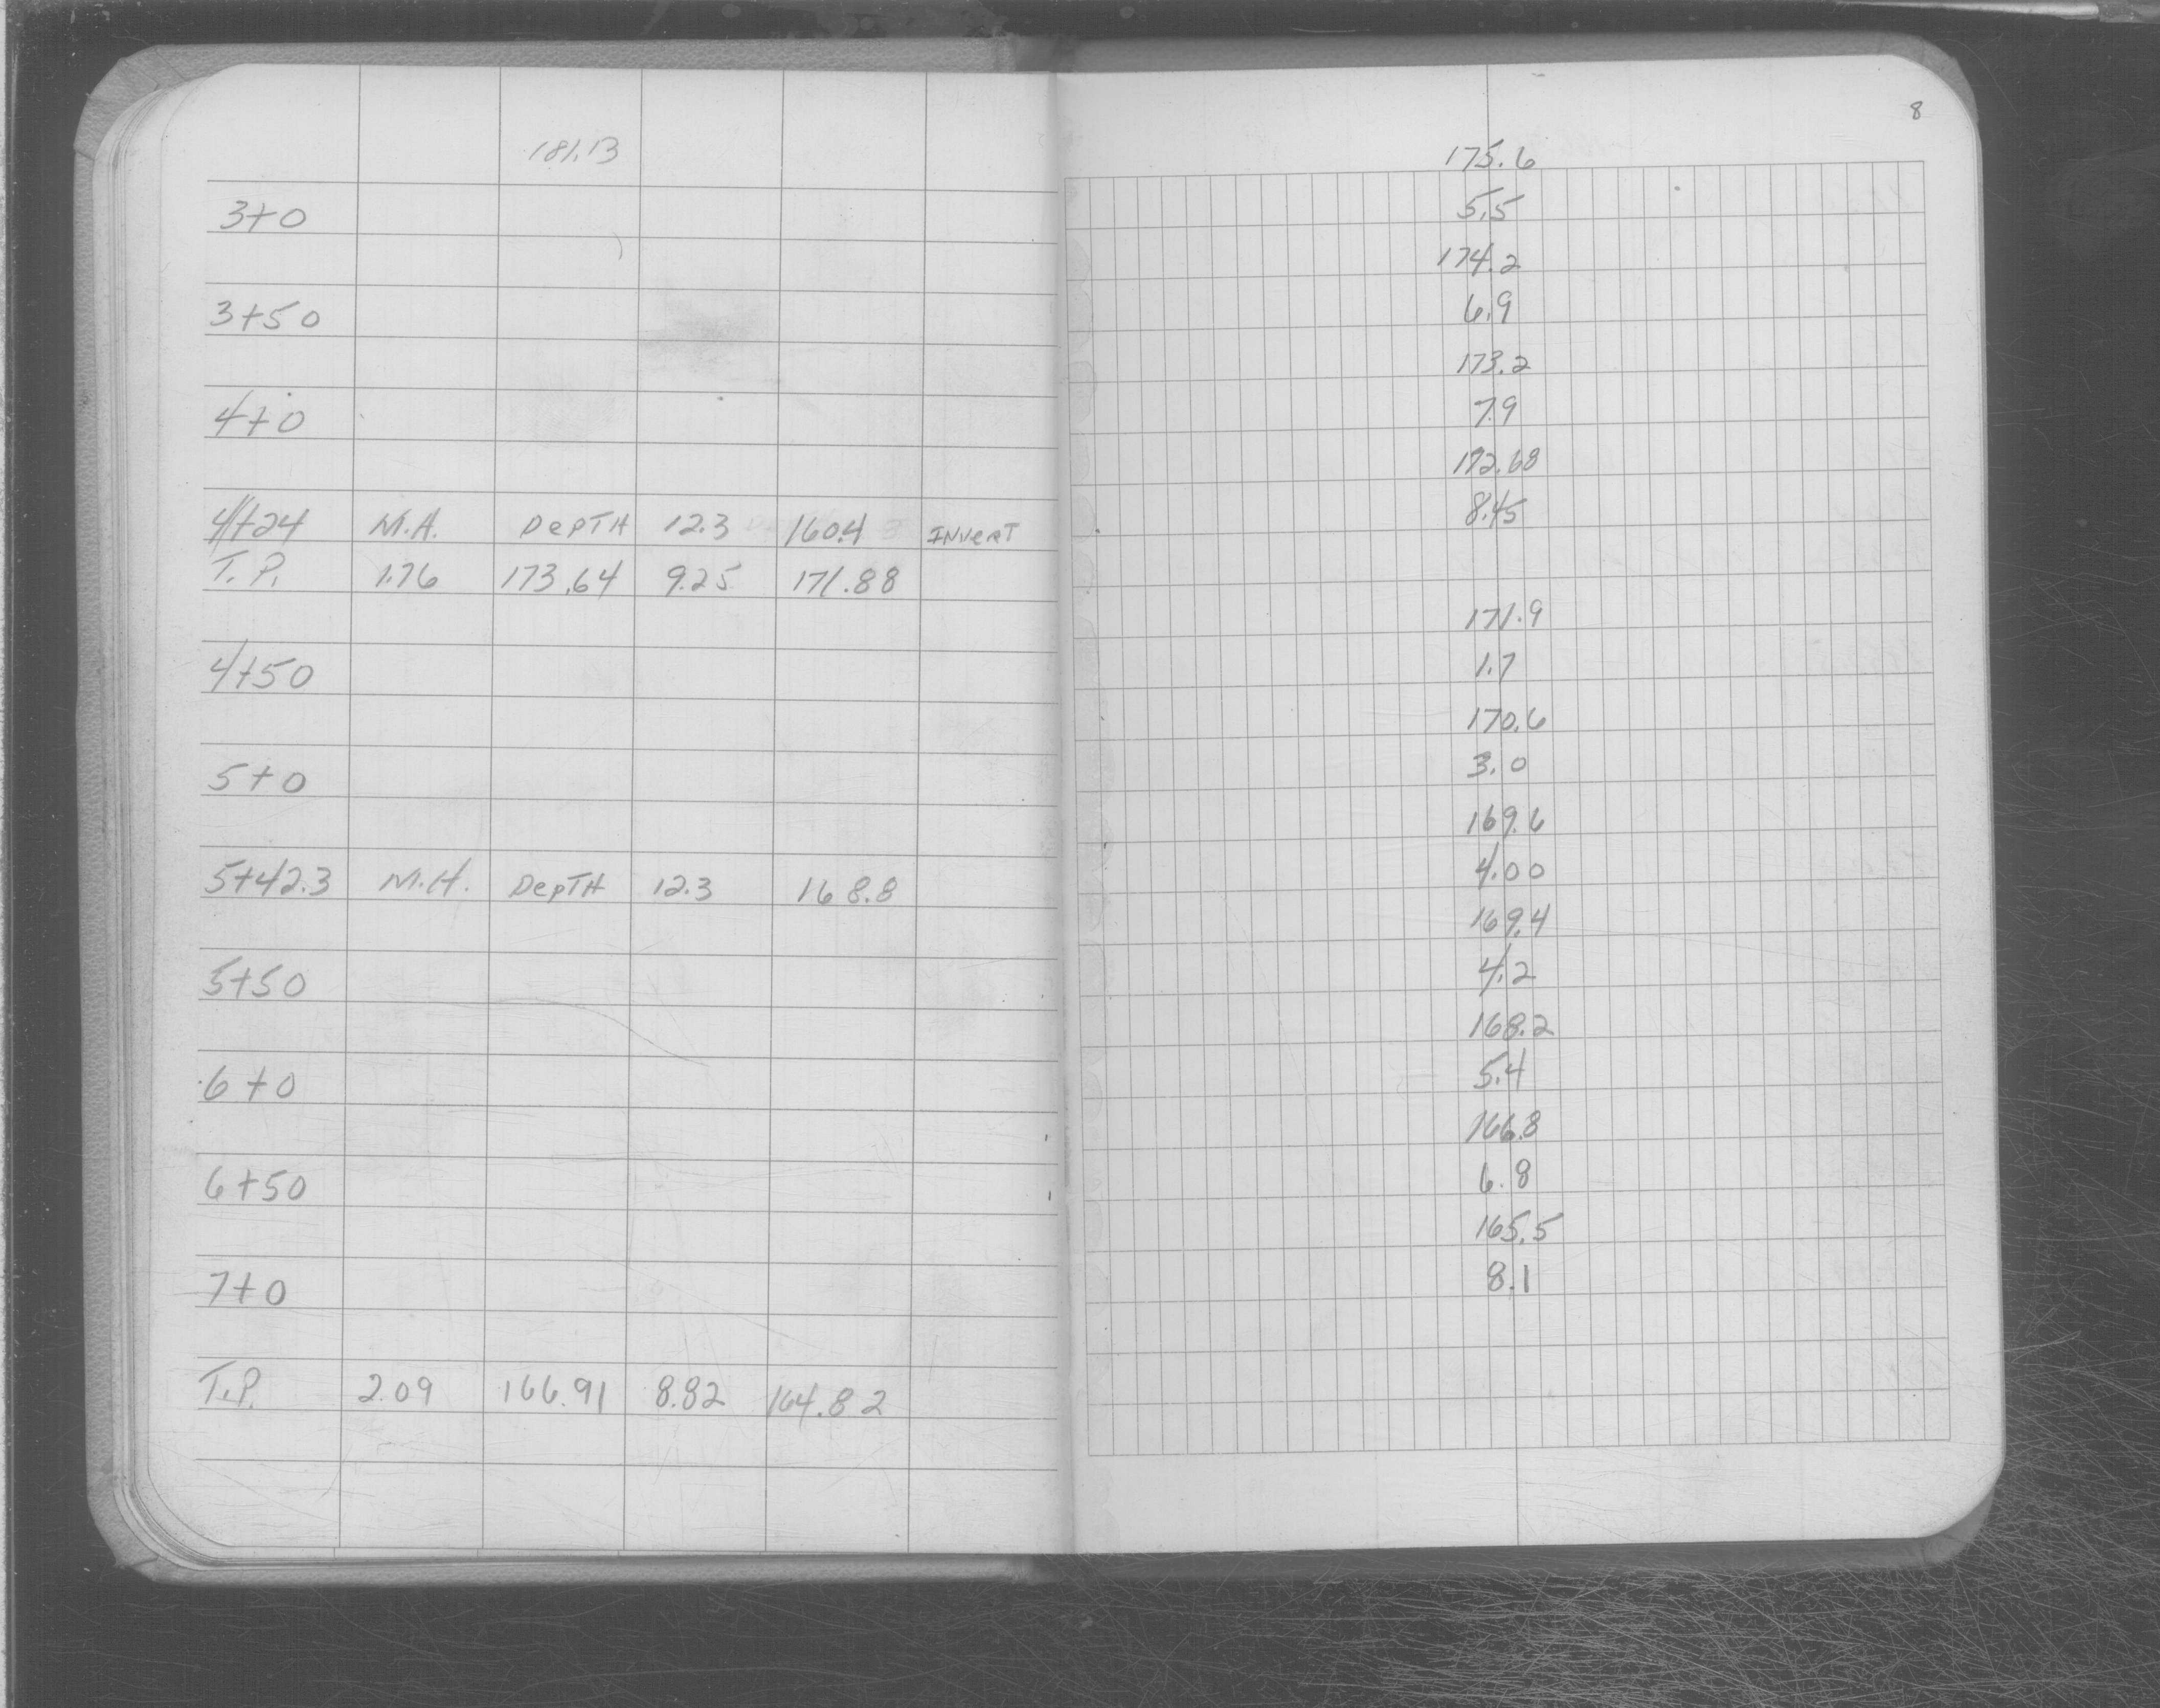 181.13
3+0
3+50
4+0
4+24 M.H. DepTH 12.3 160.4 INVerT
T.P. 1.76 173.64 9.25 171.88
4+50
5+0
5+42.3 M.H. DepTH 12.3 168.8
5+50
6+0
6+50
7+0
T.P. 2.09 166.91 8.82 164.82
8
175.6
5.5
174.2
6.9
173.2
7.9
172.68
8.45
171.9
1.7
170.6
3.0
169.6
4.00
169.4
4.2
168.2
5.4
166.8
6.8
165.5
8.1